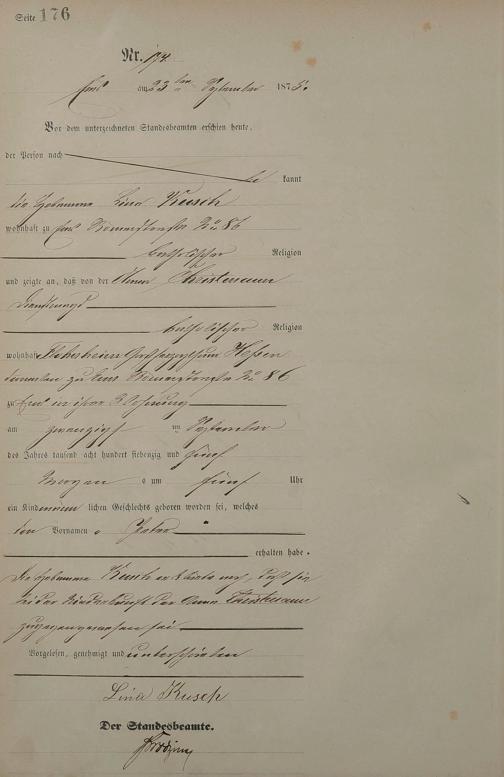 Seite 176
Nr. 174.
Ems am 23ten September 1875.
Vor dem unterzeichneten Standesbeamten erschien heute,
der Person nach
be kannt
die Hebamme Lina Kusch
wohnhaft zu Ems Römerstraße No 86
katholischer Religion
und zeigte an, daß von der Anna Christmann
Dienstmagd
katholischer Religion
wohnhaft Großherzogthum Hessen
zu Ems Römerstraße No 86
zu Ems in ihrer Wohnung
am zwanzigsten September
des Jahres tausend acht hundert siebenzig und fünf
Morgens um fünf Uhr
ein Kind männ lichen Geschlechts geboren worden sei, welches
den Vornamen Peter
erhalten habe.
Die Hebamme Kusch erklärte noch, daß sie
bei der Niederkunft der Anna Christmann
zugegen gewesen sei
Vorgelesen, genehmigt und unterschrieben
Lina Kusch
Der Standesbeamte.